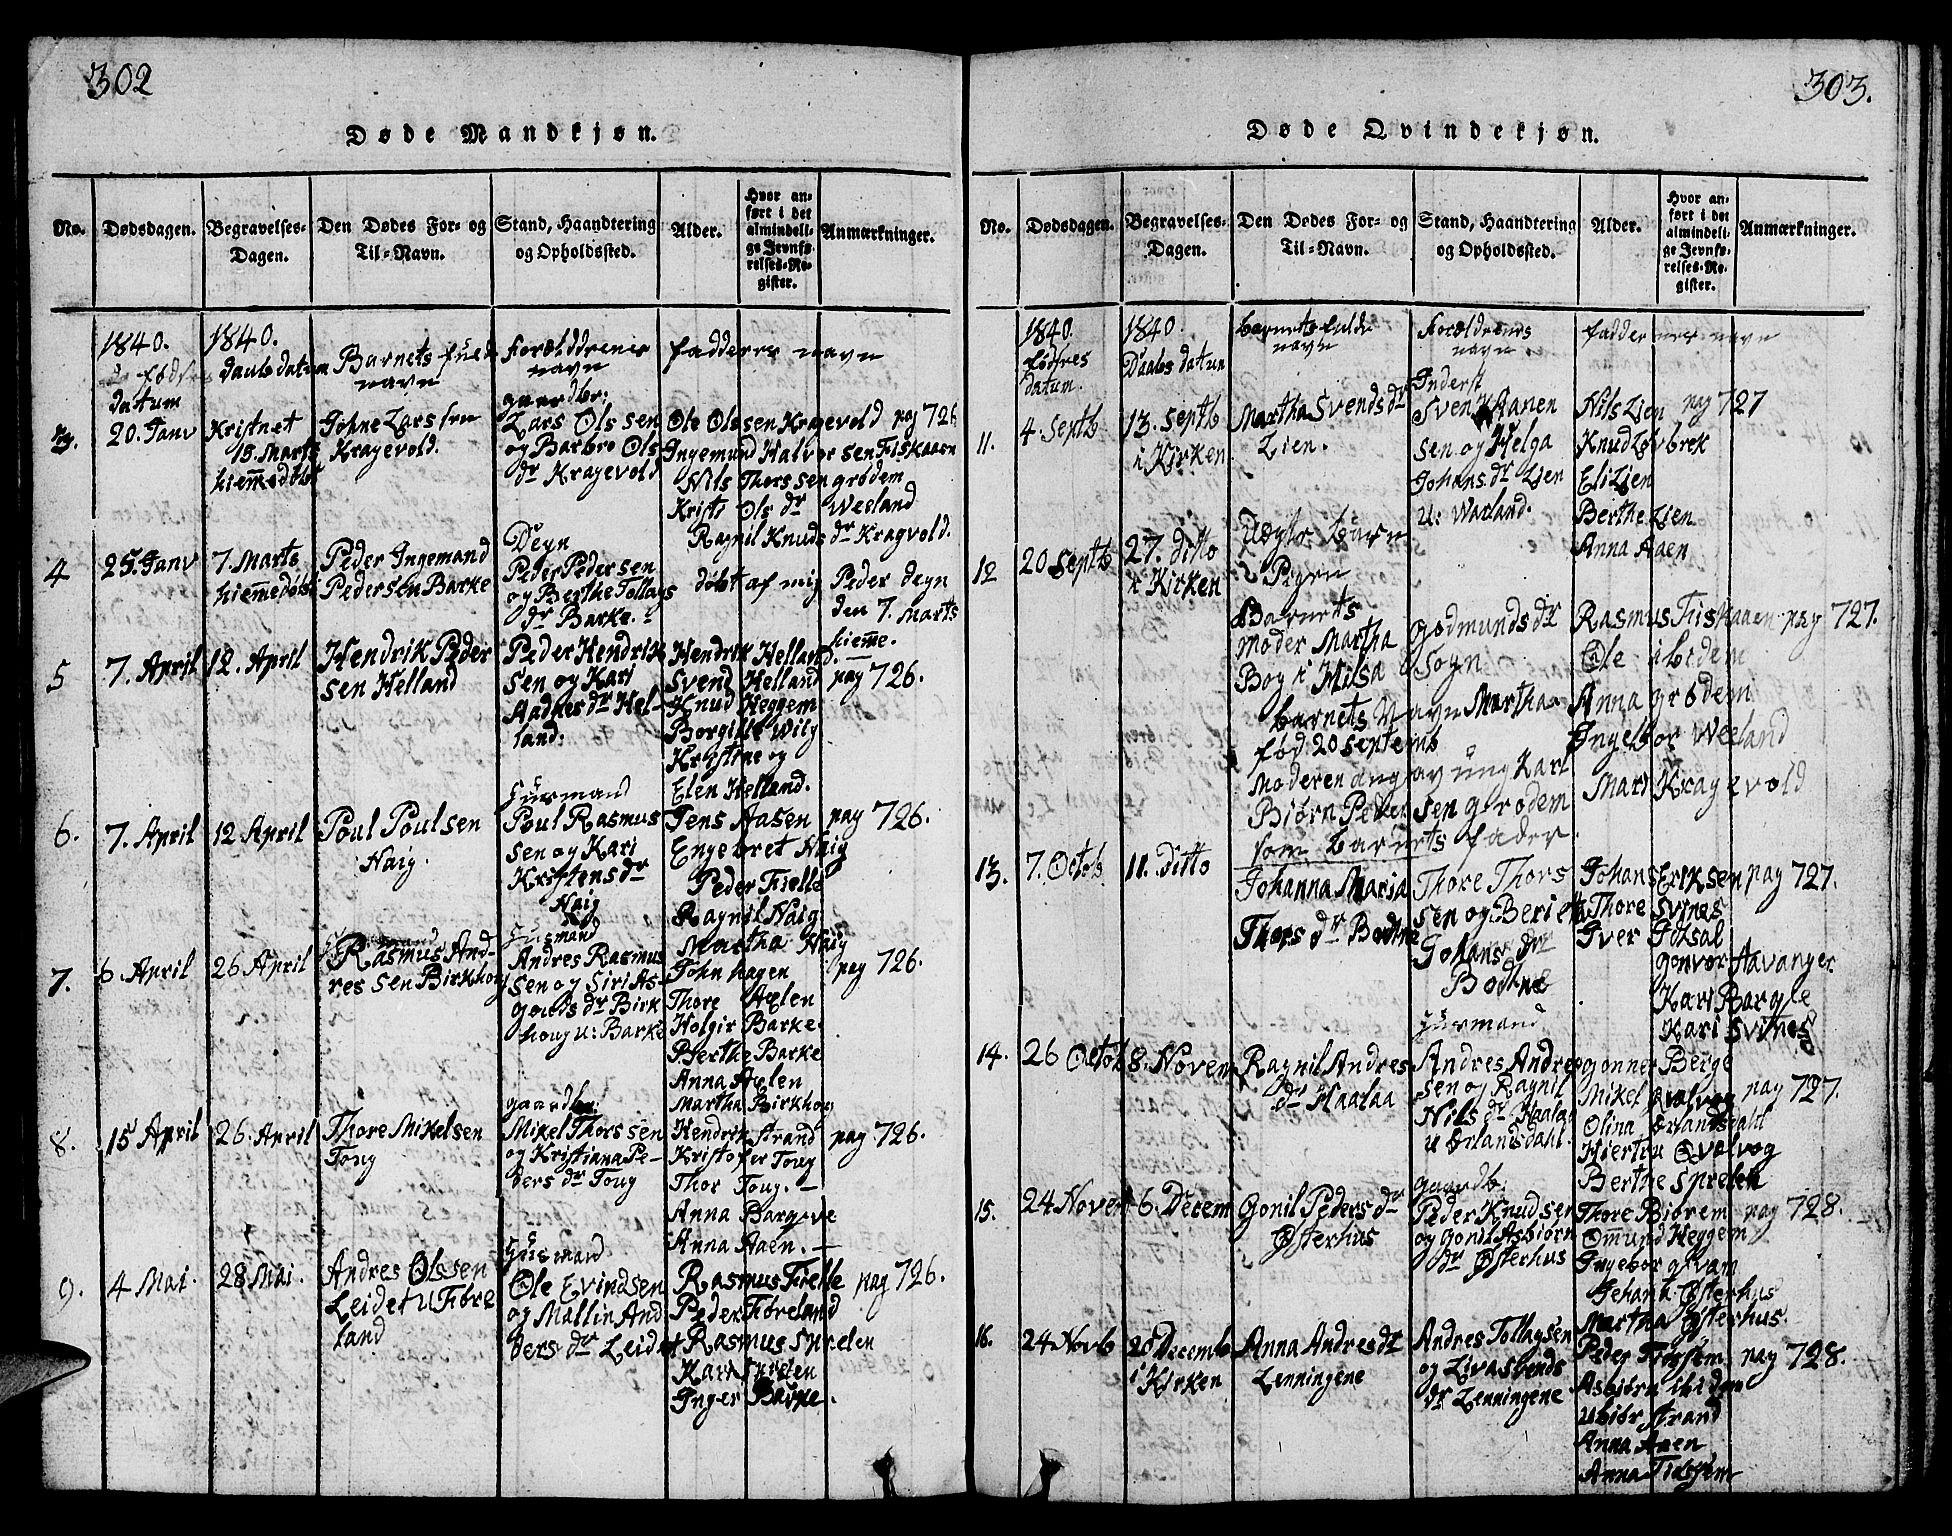 302
Døde Mandkjøn.
No.
Dødsdagen.
Begravelses-
Dagen.
Den Dødes For- og
Til-Navn.
Stand, Haandtering
og Opholdssted.
Alder.
Hvor an-
ført i det
almindeli-
ge Jevnfø-
relses-Re-
gister.
Anmærkninger.
1840.
fødses
datum
1840.
daubs datum
Barnets fulde
navn
Forælddrenes
navn
fadderes navn
3.
20. Janv
Kristnet
18. Marts
hiemedøbt
Johne Lars sen
Kragevold.
gaardbr:
Lars Ols sen
og Barbro Ols
dr Kragevold
Ole Olssen Kragevold pag 726
Ingemund Halvor sen Fiskaaen
Nils Thors sen grødem
Kristi Ols dr Weeland
Ragnil Knuds dr Kragvold.
4
25. Janv
7. Marts
hiemedøbt
Peder Ingemand
Pedersen Barke
Degn
Peder Pedersen
og Berthe Tollags
dr Barke.
døbt af mig Peder degn
den 7. Marts
hieme.
5
7. April
12. April
Hendrik Peder
sen Helland
Peder Hendrik
sen og Kari
Aadnes dr Hel-
land.
Hendrik Helland.
Svend Helland pag 726.
Knud Heggem
Borgille Wiig
Kristine og
Elen Helland.
6.
7. April
12 April
Poul Poulsen
Haig.
Huusmand
Poul Rasmus
sen og Kari
Kristens dr
Haig
Jens Aasen pag 726.
Engebret Haig
Peder Fielle
Ragnil Haig
Martha Haig
7.
6 April
26 April
Rasmus And-
res sen Birkhoug
Huusmand
Andres Rasmus
sen og Siri As-
gouds dr Birk
houg u: Barke
John hagen pag 726.
Thore Aølen
Holgir Barke
Berthe Barke
Anna Aølen
Martha Birkhoug
8.
15 April
26. April
Thore Mikelsen
Toug
gaardbr:
Mikel Thorssen
og Kristianna Pe-
ders dr Toug
Hendrik Strand pag 726.
Kristofer Toug
Thor Toug. -
Anna Bargeve
Anna Aaen. -
9.
4 Mai.
28. Mai.
Andres Olssen
Leidet u Fiøre
land
Huusmand
Ole Evindsen
og Mallin And
ders dr Leidet
Rasmus Fielle pag 726.
Peder Fiøreland
Rasmus Sprelen
Kari Sprelen
Inger Barke.
303.
Døde Qvindekjøn.
No.
Dødsdagen.
Begravelses-
Dagen.
Den Dødes For- og
Til-Navn.
Stand, Haandtering
og Opholdssted.
Alder.
Hvor an-
ført i det
almindeli-
ge Jevnfø-
relses-Re-
gister.
Anmærkninger.
1840.
fødses
datum.
1840.
Daabs datum
barnets fulde
navn
Forældrenes
navn.
faddernes navn
11.
4. Septb
13. Septb
i Kirken
Martha Svends dr
Lien.
Inderst
Sven Hanen
sen og Helga
Johans. dr Lien
u: Waland.
Nils Lien pag 727
Knud Løvbrek
Eli Lien
Berthe Lien
Anna Aaen
12
20 Septb
27. ditto
i Kirken
Uægte barn
Pigen
Barnets
moder Martha godmunds dr
Bog i Hilsa Sogn
barnets Navn Martha
fød. 20 Septemb
Moderen angav ung Karl
Biørn Peder sen grødem
som barnets fader.
Rasmus Fiskaaen pag 727.
Ole ibidem
Anna grødem
Ingebor Weeland
Mari Kragevold
13.
7. Octob
11. ditto
Johanna Maria
Thors dr Bodtne
Thore Thors
sen og Berietha
Johans dr
Bodtne
Johans Eriksen pag 727.
Thore Svines
Iver Joksal
gonvor Aavanger
Kari Bargle
Kari Svines
14.
26 Octob
8. Novem
Ragnil Andres
dr Haalaa
Huusmand
Andres Andres
sen og Ragnil
Nils dr Haalaa
u Ærlandsdahl.
gonner Berge
Mikel Qvalvog pag 727.
Olina Ærlandsdahl
Hiertru Qvalvog
Berthe Sprelen
15.
24 Novem
6. Decem
Gonil Peders dr
Østerhus
gaardb.
Peder Knudsen
og Gonil Asbiørn
dr Østerhus
Thore Biørem pag 728.
Omund Heggem
Ingebor qvam
Jehana Østerhus
Martha Østerhus.
16.
24 Novb
20 Decemb
i Kirken
Anna Andres dr
Lenningene
Andres Tollagsen
og Liva Svends
dr Lenningene
Peder Tiøssem pag 728.
Asbiørn ibidem
Ubiør Strand
Anna Aaen
Anna Tiøssem